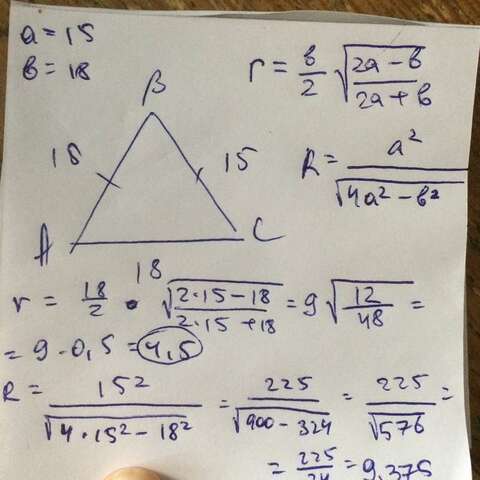 a = 15
b = 18
r = b/2 √((2a - b)/(2a + b))
B
18
15
R = a²/√(4a² - b²)
A
C
18
r = 18/2 · √((2·15 - 18)/(2·15 + 18)) = 9 √(12/48) =
= 9 · 0,5 = 4,5
R = 15²/√(4·15² - 18²) = 225/√(900 - 324) = 225/√576 =
= 225/24 = 9,375